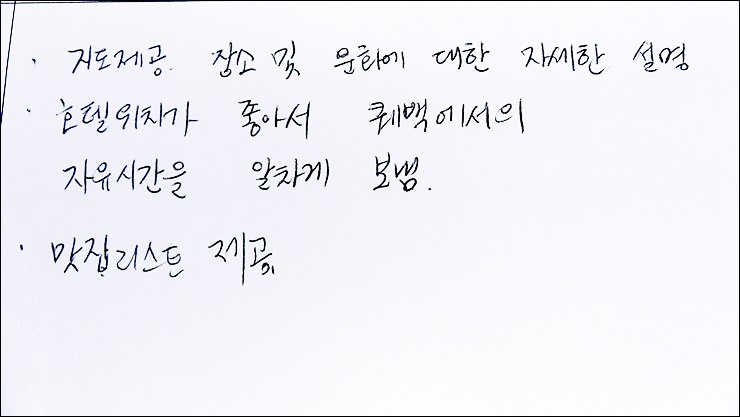 · 지도제공. 장소 및 문화에 대한 자세한 설명
· 호텔위치가 좋아서 퀘백에서의
자유시간을 알차게 보냄.
· 맛집리스트 제공.